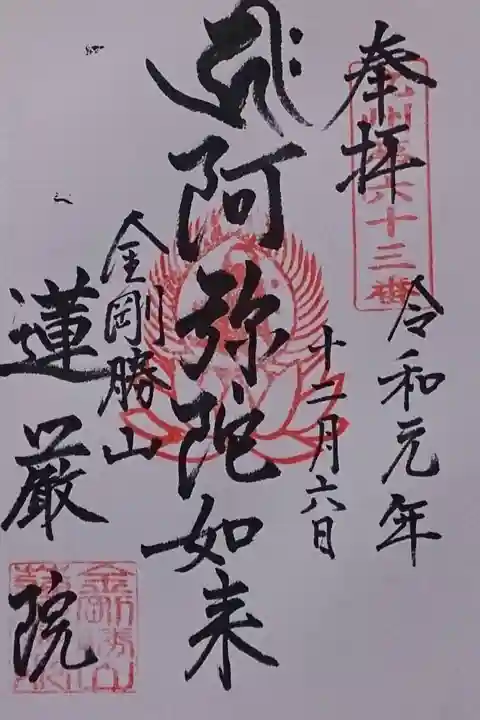 奉拝
九州第六十三番
令和元年
十二月六日
阿弥陀如来
金剛勝山
蓮厳院
金剛勝山